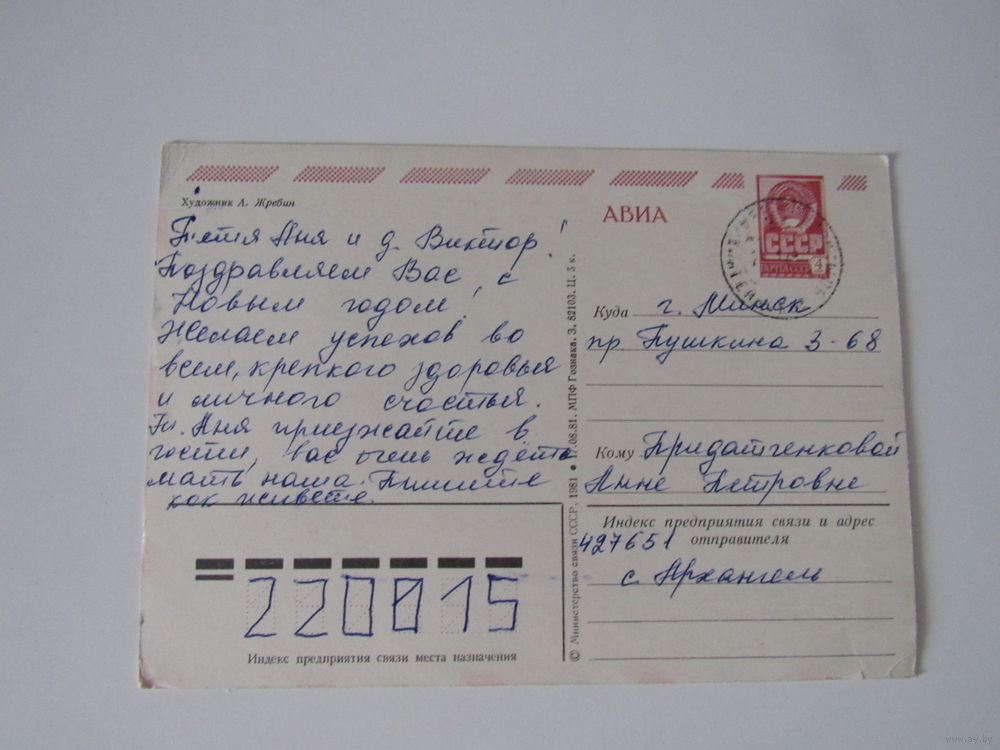 Художник А. Жребин
Тётя Аня и д. Виктор!
Поздравляем Вас с
Новым годом!
Желаем успехов во
всем, крепкого здоровья
и личного счастья.
Тт. Аня приезжайте в
гости, вас очень ждёт
мать наша. Пишите
как живете.
220015
Индекс предприятия связи места назначения
© Министерство связи СССР, 1981 • 17.08.81. МПФ Гознака. З. 82103. Ц. 5 к.
АВИА
СССР
ПОЧТА СССР 4
Куда г. Минск
пр. Пушкина 3-68
Кому Придатченковой
Анне Петровне
Индекс предприятия связи и адрес
отправителя
427651
с. Архангель
www.ay.by